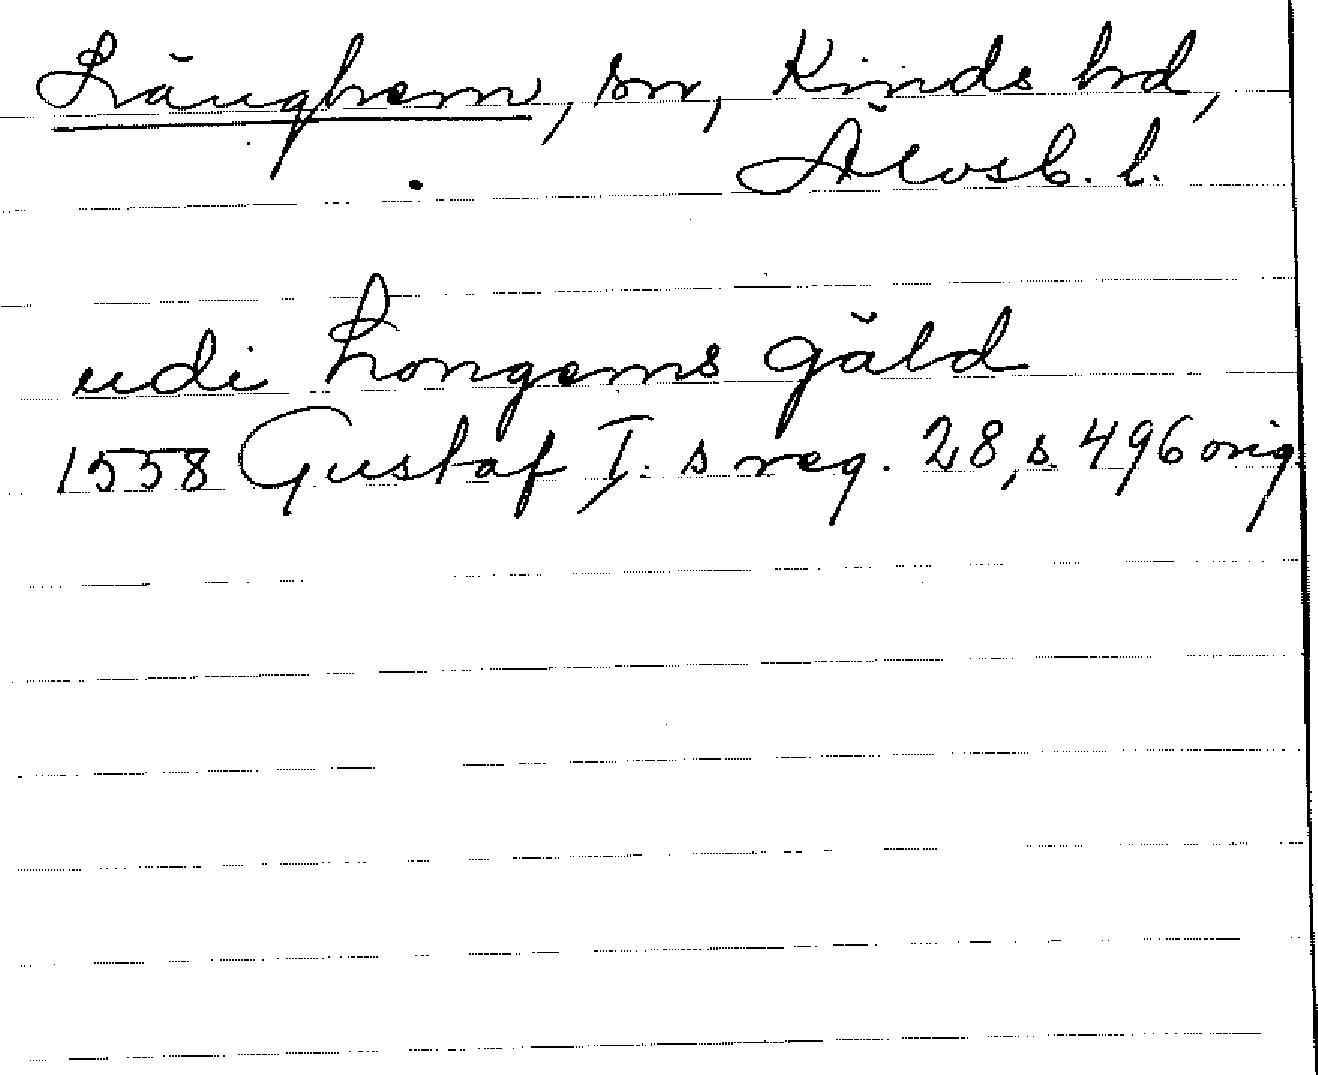 Länghem, sn, Kinds hd,
Älvsb. l.
udi Longems gäld
1558 Gustaf I:s reg. 28, s. 496 orig.